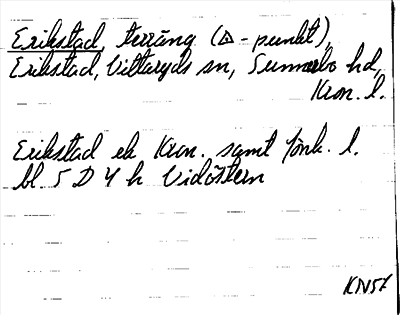 Erikstad, terräng (△-punkt),
Erikstad, Vittaryds sn, Sunnerbo hd,
Kron. l.
Erikstad ek Kron. samt Jönk. l.
bl. 5 D 4 h Vidöstern
KN57